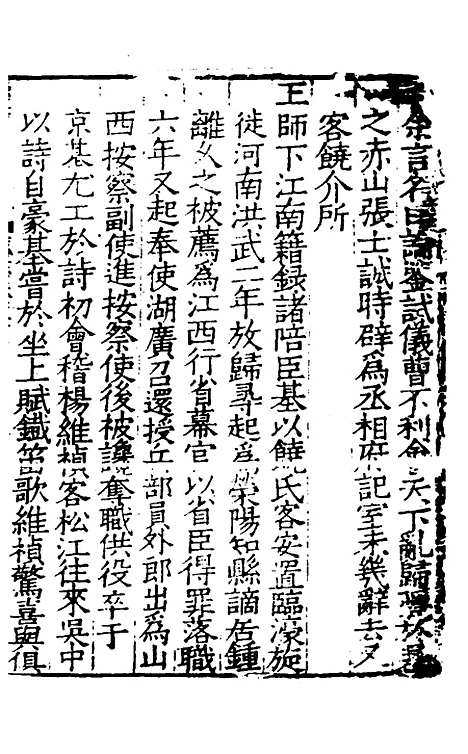 余言名曰論鑒試儀曹不利會天下亂歸隱於吳
之赤山張士誠時辟為丞相府記室未幾辭去又
客饒介所
王師下江南籍錄諸陪臣基以饒氏客安置臨濠旋
徙河南洪武二年放歸尋起為滎陽知縣謫居鍾
離久之被薦為江西行省幕官以省臣得罪落職
六年又起奉使湖廣召還授兵部員外郎出為山
西按察副使進按察使後被讒奪職供役卒于
京基尤工於詩初會稽楊維禎客松江往來吳中
以詩自豪基嘗於坐上賦鐵笛歌維禎驚喜與俱